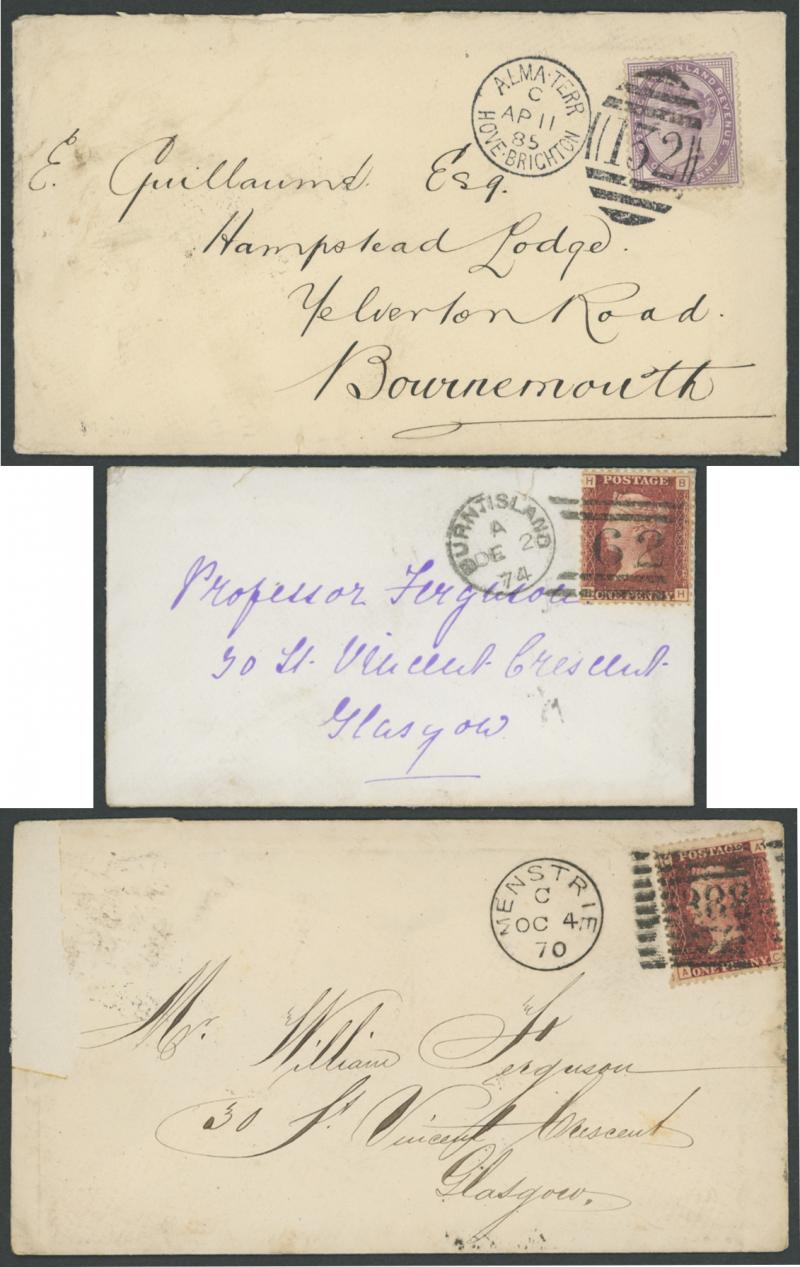 ALMA·TERR
C
AP 11
85
HOVE·BRIGHTON
INLAND REVENUE
132
E. Guillaumé. Esq.
Hampstead Lodge.
Yelverton Road.
Bournemouth
BURNTISLAND
A
DE 2
74
H B
POSTAGE
62
ONE PENNY
H
Professor Ferguson.
30 St. Vincent Crescent
Glasgow
MENSTRIE
C
OC 4
70
POSTAGE
A
A ONE PENNY C
Mr. William Ferguson
30 St Vincent Crescent
Glasgow.